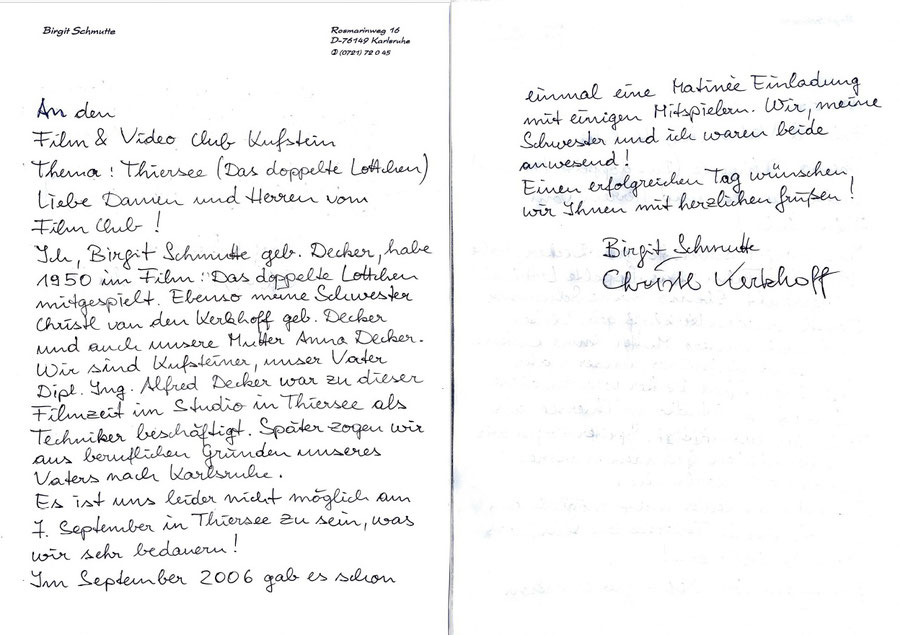 Birgit Schmutte
Rosmarinweg 16
D-76149 Karlsruhe
✆ (0721) 72 0 45
An den
Film & Video Club Kufstein
Thema: Thiersee (Das doppelte Lottchen)
Liebe Damen und Herren vom
Film Club!
Ich, Birgit Schmutte geb. Decker, habe
1950 im Film: Das doppelte Lottchen
mitgespielt. Ebenso meine Schwester
Christl van den Kerkhoff geb. Decker
und auch unsere Mutter Anna Decker.
Wir sind Kufsteiner, unser Vater
Dipl. Ing. Alfred Decker war zu dieser
Filmzeit im Studio in Thiersee als
Techniker beschäftigt. Später zogen wir
aus beruflichen Gründen unseres
Vaters nach Karlsruhe.
Es ist uns leider nicht möglich am
7. September in Thiersee zu sein, was
wir sehr bedauern!
Im September 2006 gab es schon
einmal eine Matinèe Einladung
mit einigen Mitspielern. Wir, meine
Schwester und ich waren beide
anwesend!
Einen erfolgreichen Tag wünschen,
wir Ihnen mit herzlichen Grüßen!
Birgit Schmutte
Christl Kerkhoff